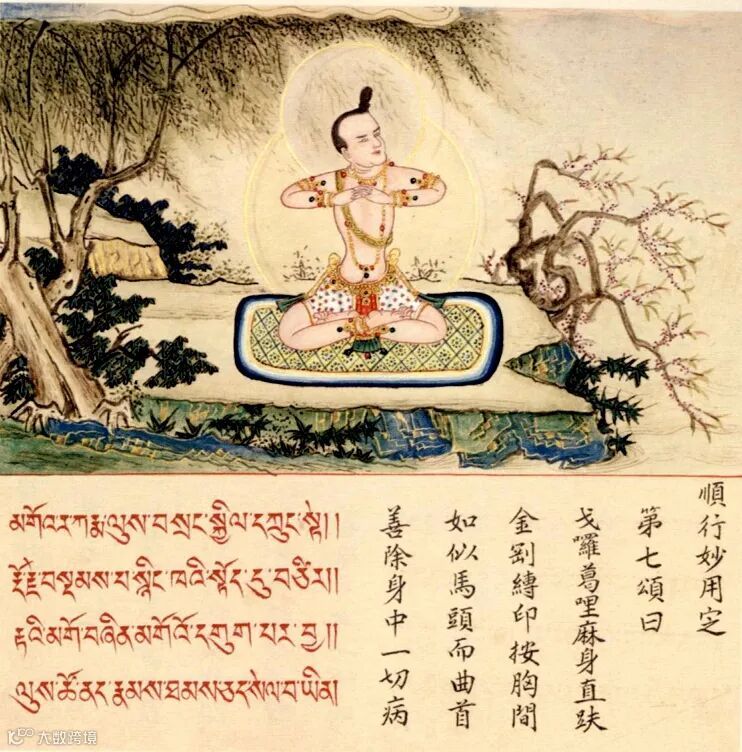 མགོའར་ཀརྨ་ལུས་བསྲང་སྐྱིལ་དཀྲུང་སྟེ།།
རྡོ་རྗེ་བསྡམས་པ་སྙིང་ཁའི་སྟོད་དུ་བཙིར།།
རྟའི་མགོ་བཞིན་མགོའོ་དགུག་པར་བྱ།།
ལུས་ཚོ་ནད་རྣམས་ཐམས་ཅད་སེལ་བ་ཡིན།
順行妙用定
第七頌曰
戈囉葛哩麻身直趺
金剛縛印按胸間
如似馬頭而曲首
善除身中一切病
大数跨境